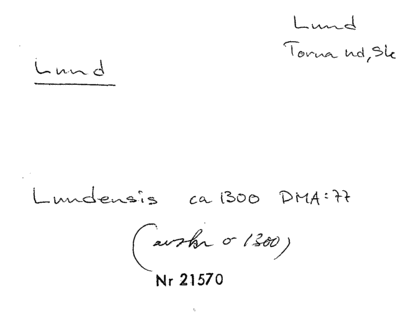 Lund
Torna hd, Sk
Lund
Lundensis ca 1300 DMA:77
(avskr o 1300)
Nr 21570